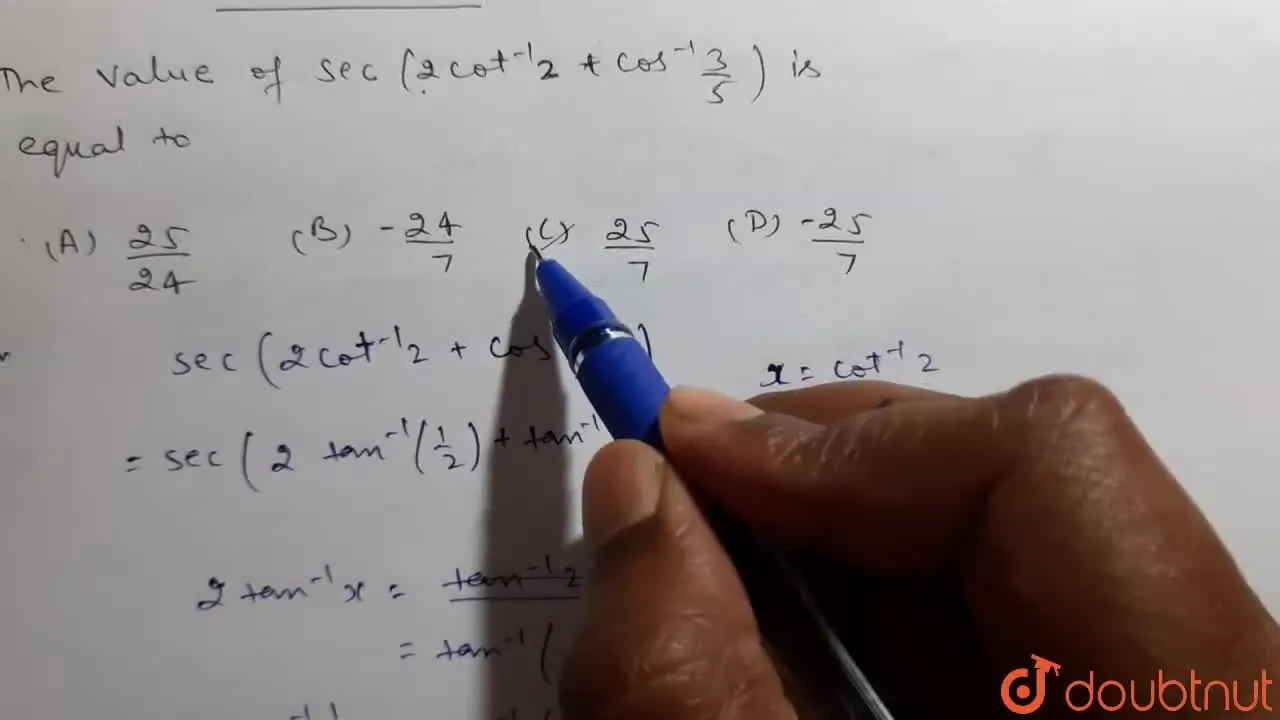 The value of sec (2cot⁻¹2 + cos⁻¹ 3/5) is
equal to
(A) 25/24 (B) -24/7 (C) 25/7 (D) -25/7
sec (2cot⁻¹2 + cos )
x = cot⁻¹ 2
= sec (2 tan⁻¹(1/2) + tan⁻¹
2 tan⁻¹x = tan⁻¹2
= tan⁻¹(
doubtnut